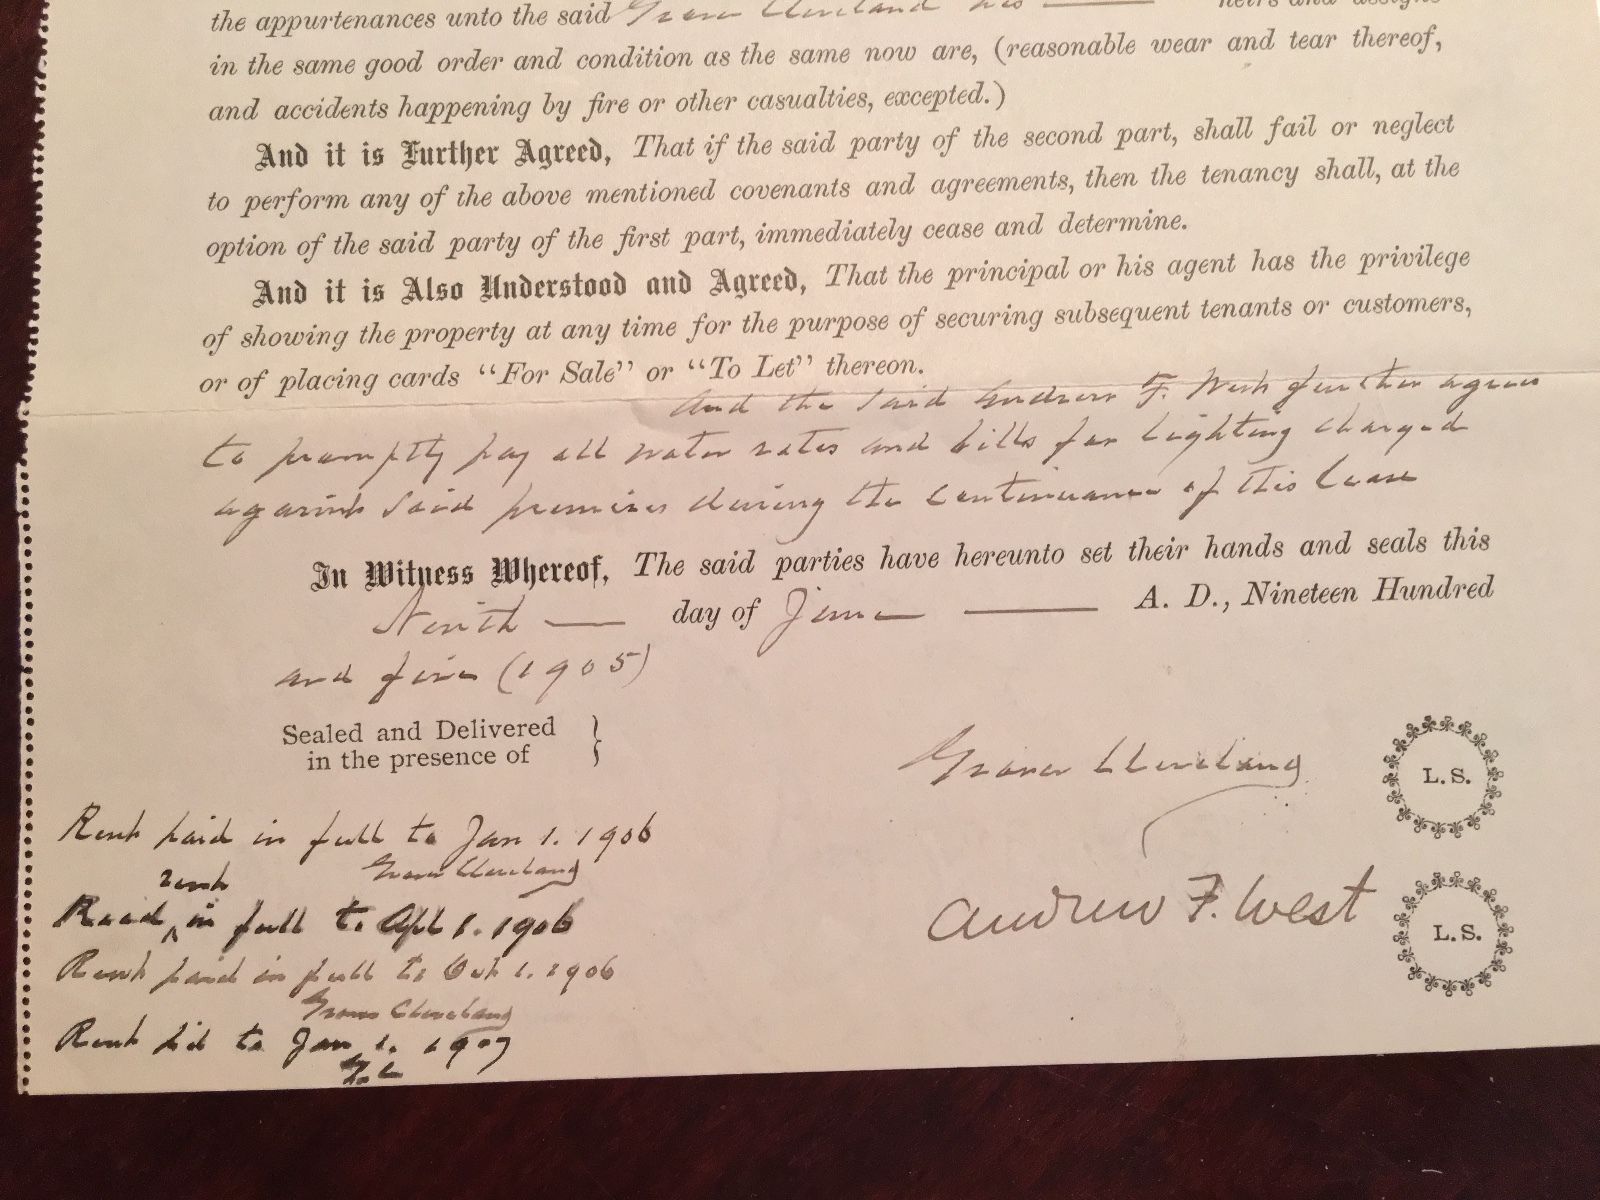 the appurtenances unto the said Grover Cleveland his heirs and assigns
in the same good order and condition as the same now are, (reasonable wear and tear thereof,
and accidents happening by fire or other casualties, excepted.)
And it is Further Agreed, That if the said party of the second part, shall fail or neglect
to perform any of the above mentioned covenants and agreements, then the tenancy shall, at the
option of the said party of the first part, immediately cease and determine.
And it is Also Understood and Agreed, That the principal or his agent has the privilege
of showing the property at any time for the purpose of securing subsequent tenants or customers,
or of placing cards “For Sale” or “To Let” thereon.
And the said Andrew F. West further agrees
to promptly pay all water rates and bills for lighting charged
against said premises during the continuance of this lease
In Witness Whereof, The said parties have hereunto set their hands and seals this
Ninth — day of June — A. D., Nineteen Hundred
and five (1905)
Sealed and Delivered
in the presence of
Grover Cleveland
L. S.
Andrew F. West
L. S.
Rent paid in full to Jan 1. 1906
Grover Cleveland
rent
Recd ^ in full to Apl 1. 1906
Rent paid in full to Oct 1. 1906
Grover Cleveland
Rent pd to Jan 1. 1907
G. C